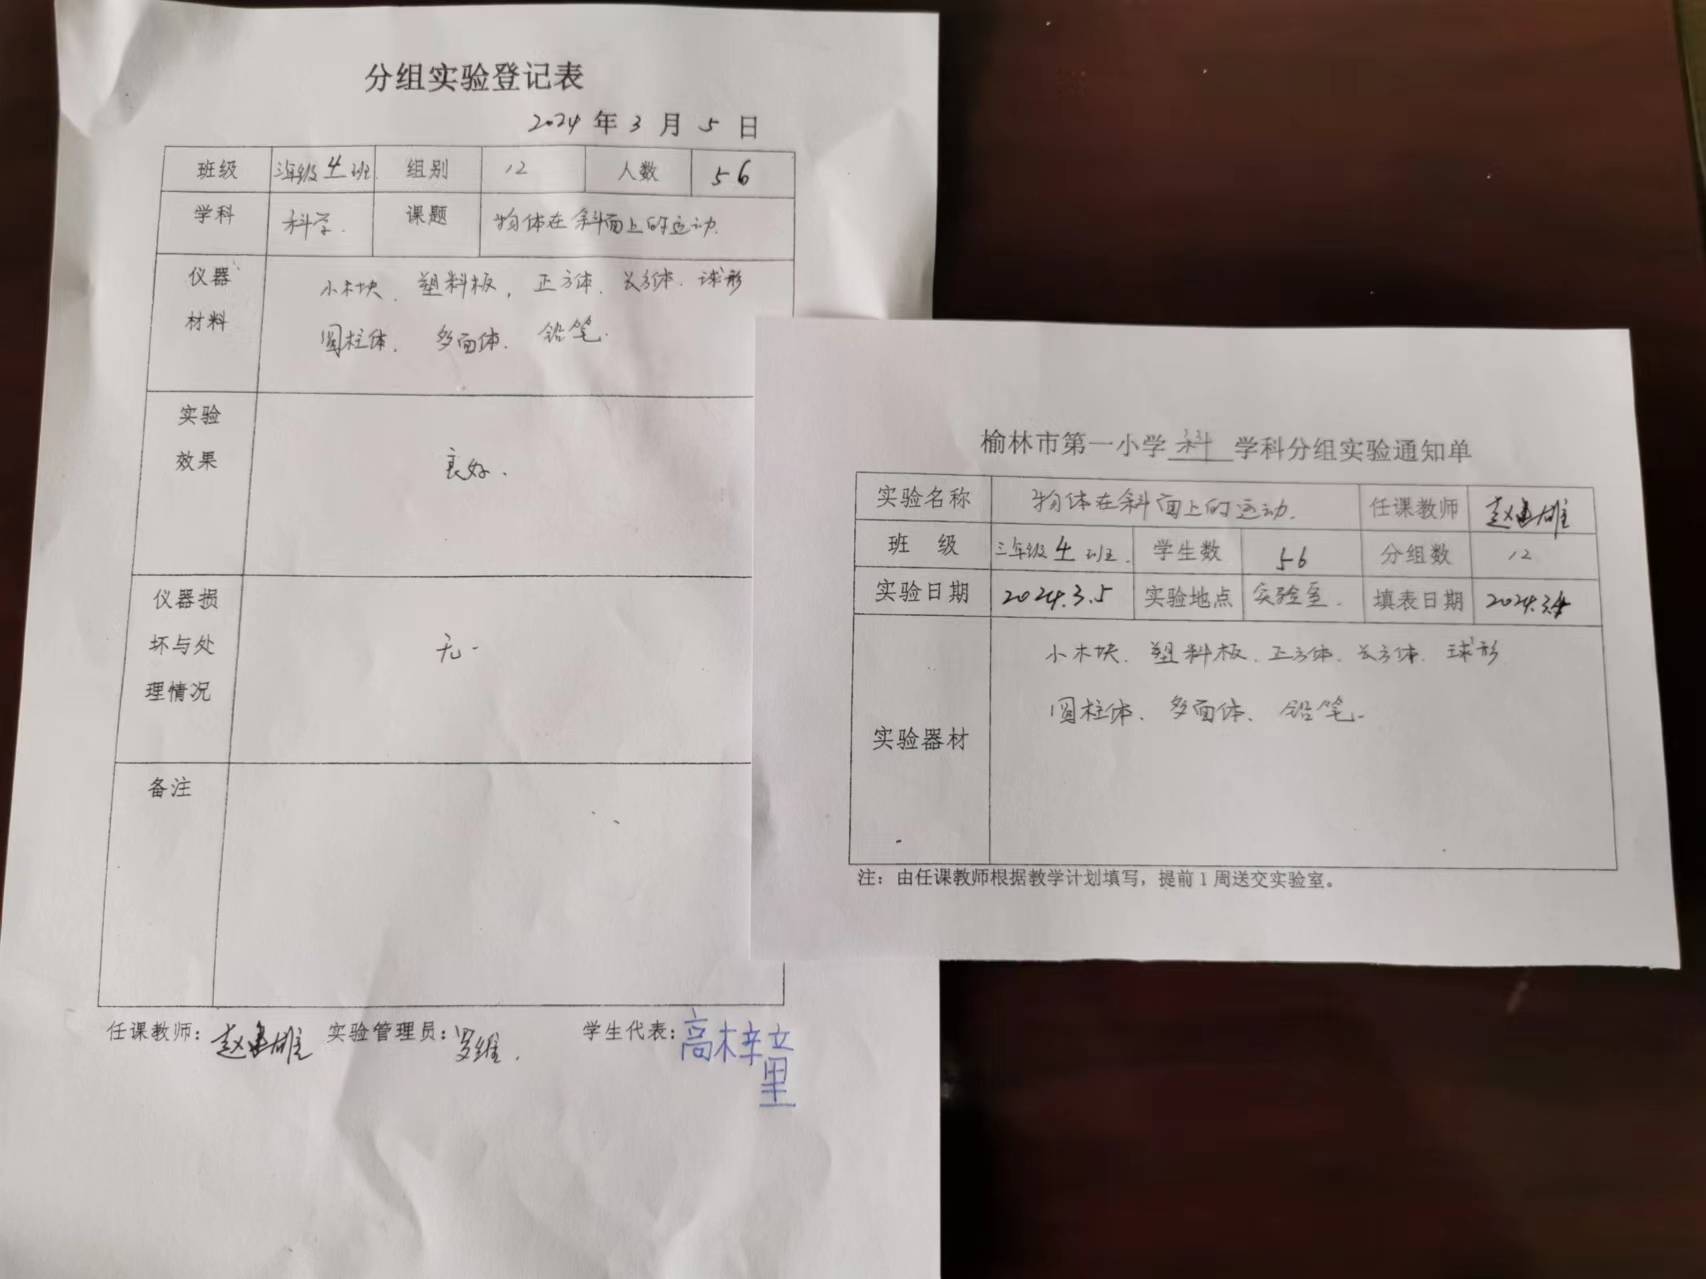 分组实验登记表
2024 年 3 月 5 日
班级 三年级4班 组别 12 人数 56
学科 科学. 课题 物体在斜面上的运动.
仪器 小木块、塑料板,正方体、长方体、球形
材料 圆柱体、多面体、铅笔.
实验
效果 良好.
仪器损
坏与处 无.
理情况
备注
任课教师: 赵 雄 实验管理员: 罗维. 学生代表: 高梓童
榆林市第一小学 科 学科分组实验通知单
实验名称 物体在斜面上的运动. 任课教师 赵 雄
班 级 三年级4班. 学生数 56 分组数 12
实验日期 2024.3.5 实验地点 实验室. 填表日期 2024.3.4
小木块、塑料板、正方体、长方体、球形
圆柱体、多面体、铅笔.
实验器材
注:由任课教师根据教学计划填写,提前1周送交实验室。